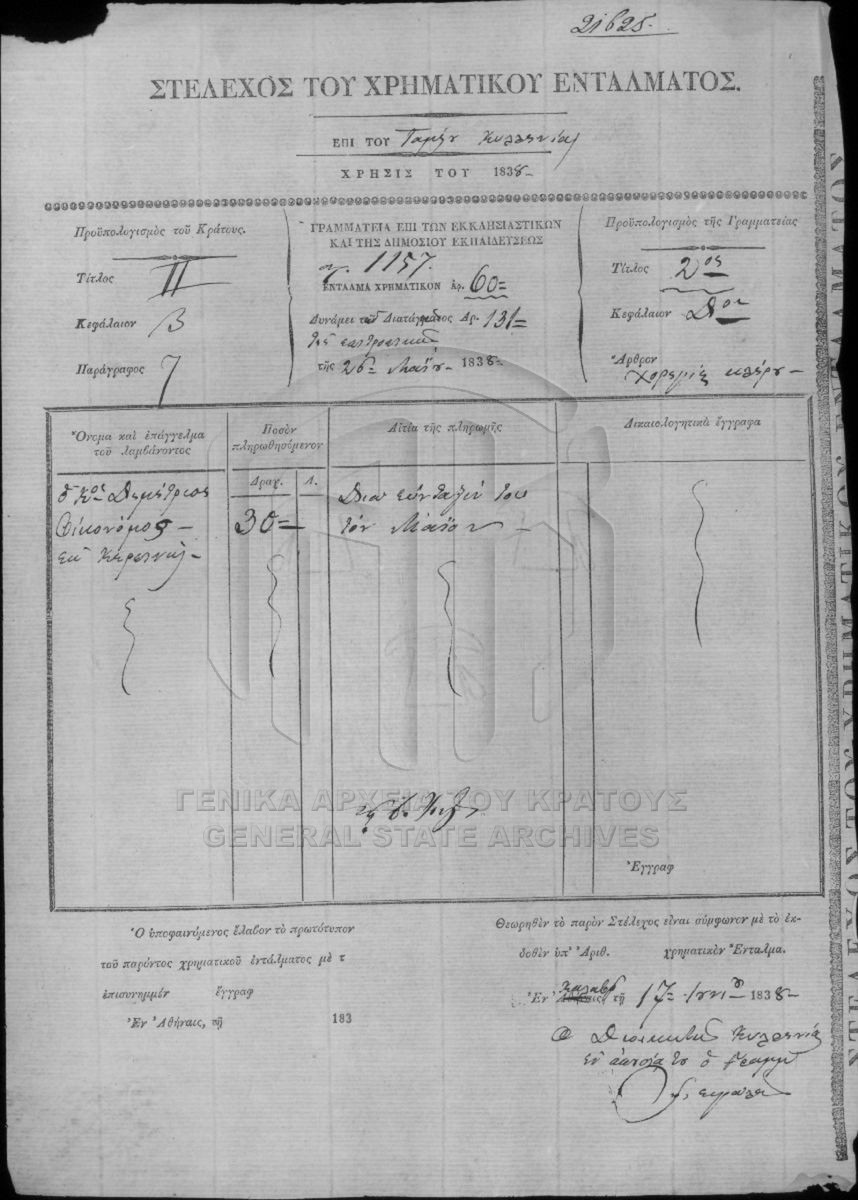 21625.
ΣΤΕΛΕΧΟΣ ΤΟΥ ΧΡΗΜΑΤΙΚΟΥ ΕΝΤΑΛΜΑΤΟΣ.
ΕΠΙ ΤΟΥ Ταμίου Κυλληνίας
ΧΡΗΣΙΣ ΤΟΥ 1838
Προϋπολογισμὸς τοῦ Κράτους.
Τίτλος II
Κεφάλαιον 3
Παράγραφος 7
ΓΡΑΜΜΑΤΕΙΑ ΕΠΙ ΤΩΝ ΕΚΚΛΗΣΙΑΣΤΙΚΩΝ
ΚΑΙ ΤΗΣ ΔΗΜΟΣΙΟΥ ΕΚΠΑΙΔΕΥΣΕΩΣ
1157.
ΕΝΤΑΛΜΑ ΧΡΗΜΑΤΙΚΟΝ Αρ. 60=
Δυνάμει τοῦ Διατάγματος Αρ. 131=
τῆς 26 Μαΐου 1838
Προϋπολογισμὸς τῆς Γραμματείας
Τίτλος 2ος
Κεφάλαιον
Ἄρθρον
χορηγίαι κλήρου
Ὄνομα καὶ ἐπάγγελμα
τοῦ λαμβάνοντος
Ποσὸν
πληρωθησόμενον
Αἰτία τῆς πληρωμῆς
Δικαιολογητικὰ ἔγγραφα
Δραχ. Λ.
ὁ Κος Δημήτριος
Οἰκονόμος
ἐκ
30=
Διὰ σύνταξίν του
τὸν Μάϊον
ΓΕΝΙΚΑ ΑΡΧΕΙΑ ΤΟΥ ΚΡΑΤΟΥΣ
GENERAL STATE ARCHIVES
Ἔγγραφ
Ὁ ὑποφαινόμενος ἔλαβον τὸ πρωτότυπον
τοῦ παρόντος χρηματικοῦ ἐντάλματος μὲ τ
ἐπισυνημμέν ἔγγραφ
Ἐν Ἀθήναις, τῇ 183
Θεωρηθὲν τὸ παρὸν Στέλεχος εἶναι σύμφωνον μὲ τὸ ἐκ-
δοθὲν ὑπ' Ἀριθ. χρηματικὸν Ἔνταλμα.
Ἐν Ἀθήναις, τῇ 17 1838
Ὁ Διοικητὴς Κυλληνίας
ἐν ἀπουσίᾳ του ὁ Γραμμ
ΣΤΕΛΕΧΟΣ ΤΟΥ ΧΡΗΜΑΤΙΚΟΥ ΕΝΤΑΛΜΑΤΟΣ